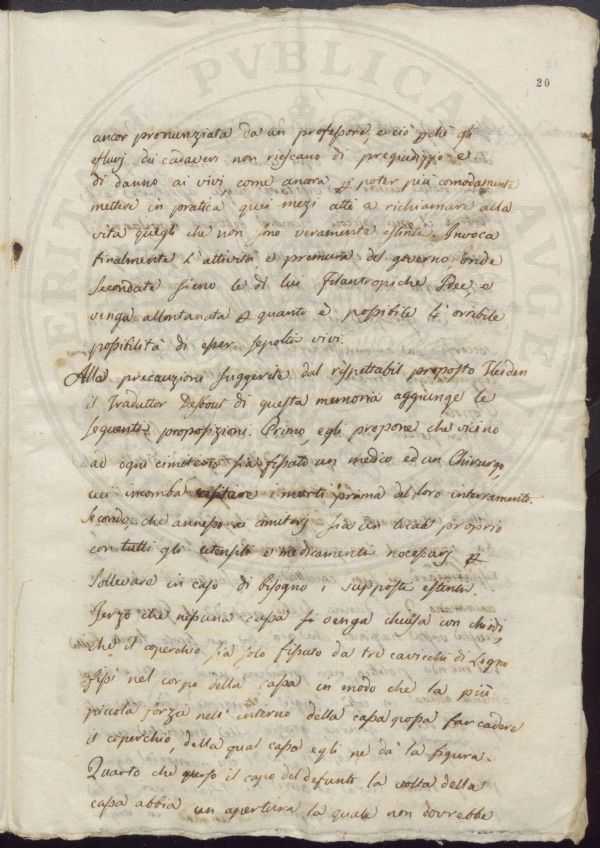 20
ancor pronunziata da un professore, e ciò pchè gli
efluvj dei cadaveri non riescano di pregiudizio e
di danno ai vivi come ancora p poter più comodamente
mettere in pratica quei mezi atti a richiamare alla
vita quegli che non sono veramente estinti. Invoca
finalmente l'attività e premura del governo onde
secondate sieno le di lui filantropiche Idee, e
venga allontanata p quanto è possibile l'orribile
possibilità di esser sepolti vivi.
Alla precauzioni suggerite dal rispettabil proposto Heiden
il Traduttor Desbout di questa memoria aggiunge le
seguenti proposizioni. Primo, egli propone che vicino
ad ogni cimoterio sia fissato un medico ed un Chirurgo,
cui incomba visitare i morti prima del loro interramento.
Secondo, che annesso ai cimiterj sia un locale proprio
con tutti gli utensili e medicamenti necessarj p
sollevare in caso di bisogno i supposti estinti.
Terzo che nissuna cassa si venga chiusa con chiodi,
che il coperchio sia solo fissato da tre cavicchi di Legno
fissi nel corpo della cassa in modo che la più
piccola forza nell'interno della cassa possa far cadere
il coperchio, della qual cassa egli ne dà la figura.
Quarto che verso il capo del defunto la volta della
cassa abbia un apertura la quale non dovrebbe